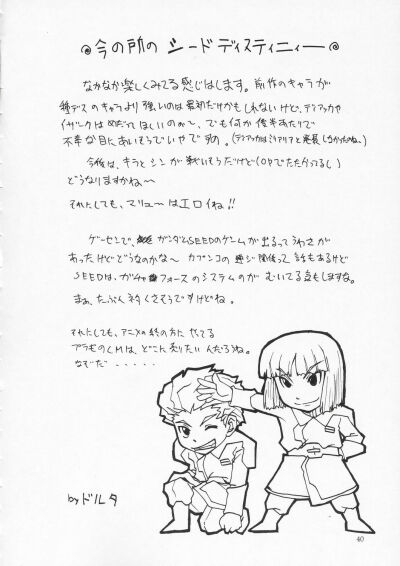 今の所の シードディスティニィー
なかなか楽しくみてる感じはします。前作のキャラが
種デスのキャラより強いのは最初だけかもしれないけど、ディアッカや
イザークはめだってほしいのぉ〜、でも何か後半あたりで
不幸な目にあいそうでいやですの。(ディアッカはミリアリアと進展しなかったのね、)
今後は、キラとシンが戦いそうだけど(OPでたたかってるし)
どうなりますかね〜
それにしても、マリューはエロイね!!
ゲーセンで、ガンダムSEEDのゲームが出るってうわさが
あったけどどうなのかな〜 カプンコの 関係って話もあるけど
SEEDは、ガチャフォースのシステムのが むいてる気もしますな。
まぁ、たぶんネタくさそうですけどね。
それにしても、アニメの終の方に やてる
プラモのCMは、どこに売りたいんだろうね。
なぞだ・・・・・
by ドルタ
40